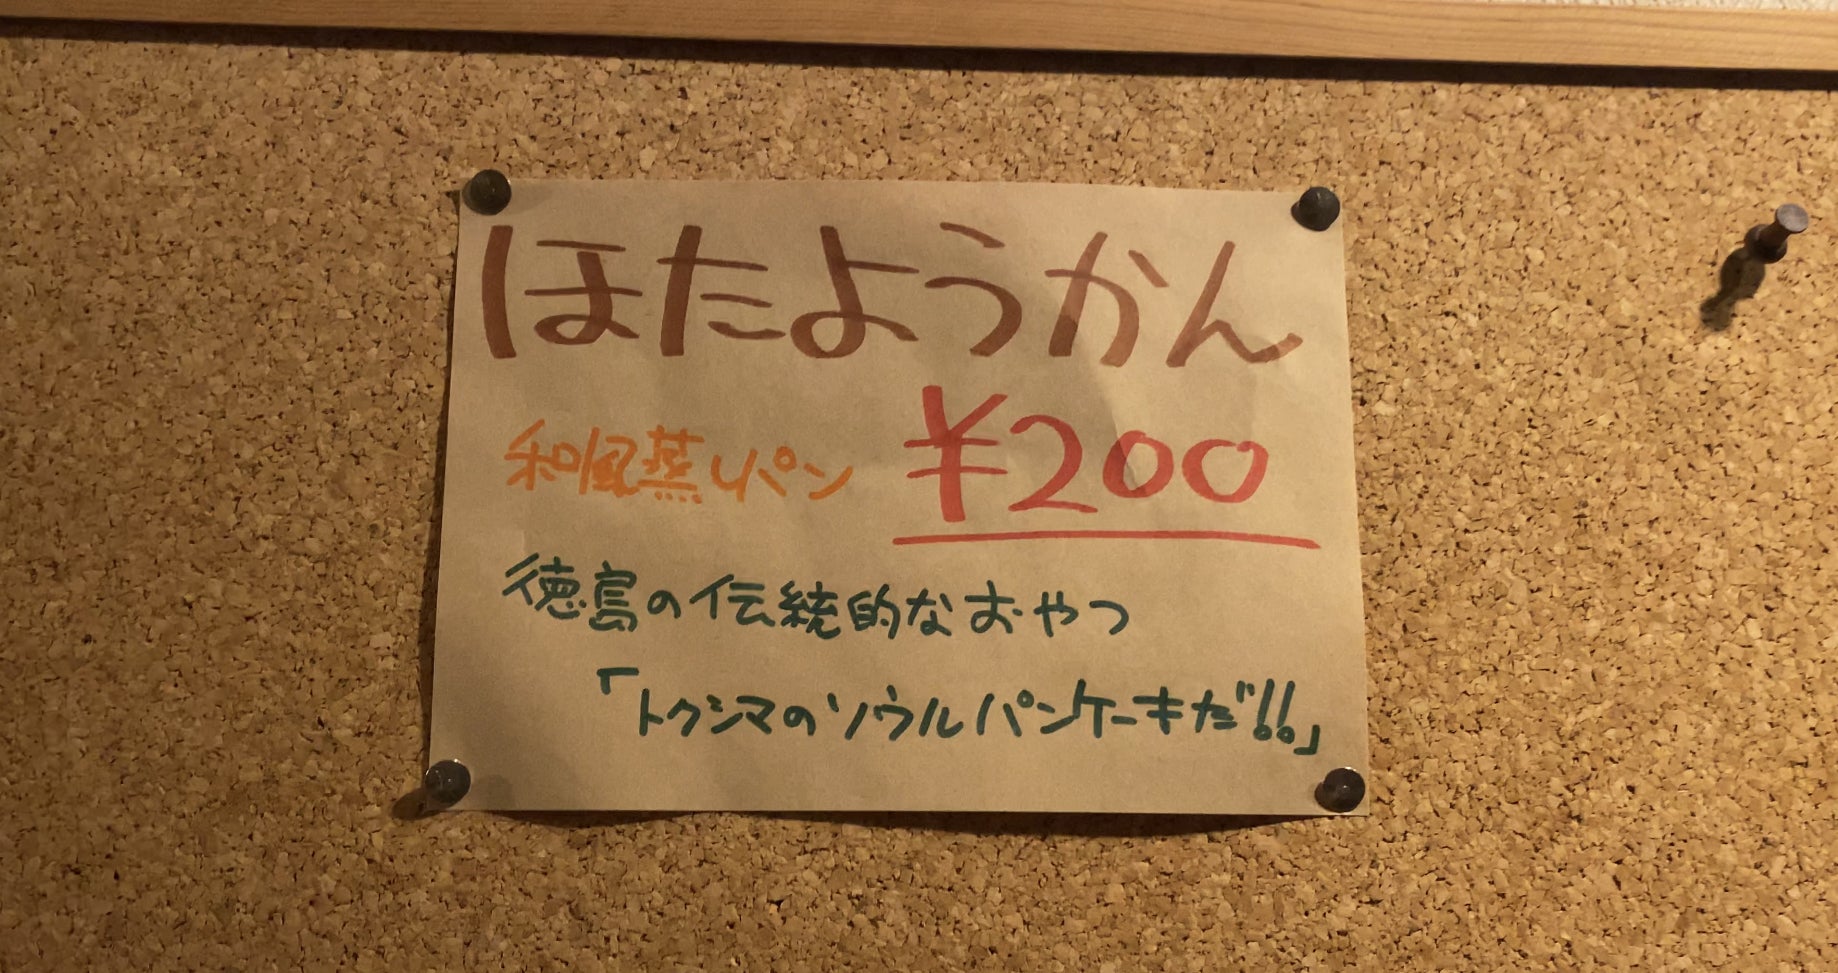 ほたようかん
和風蒸しパン ¥200
徳島の伝統的なおやつ
「トクシマのソウルパンケーキだ!!」